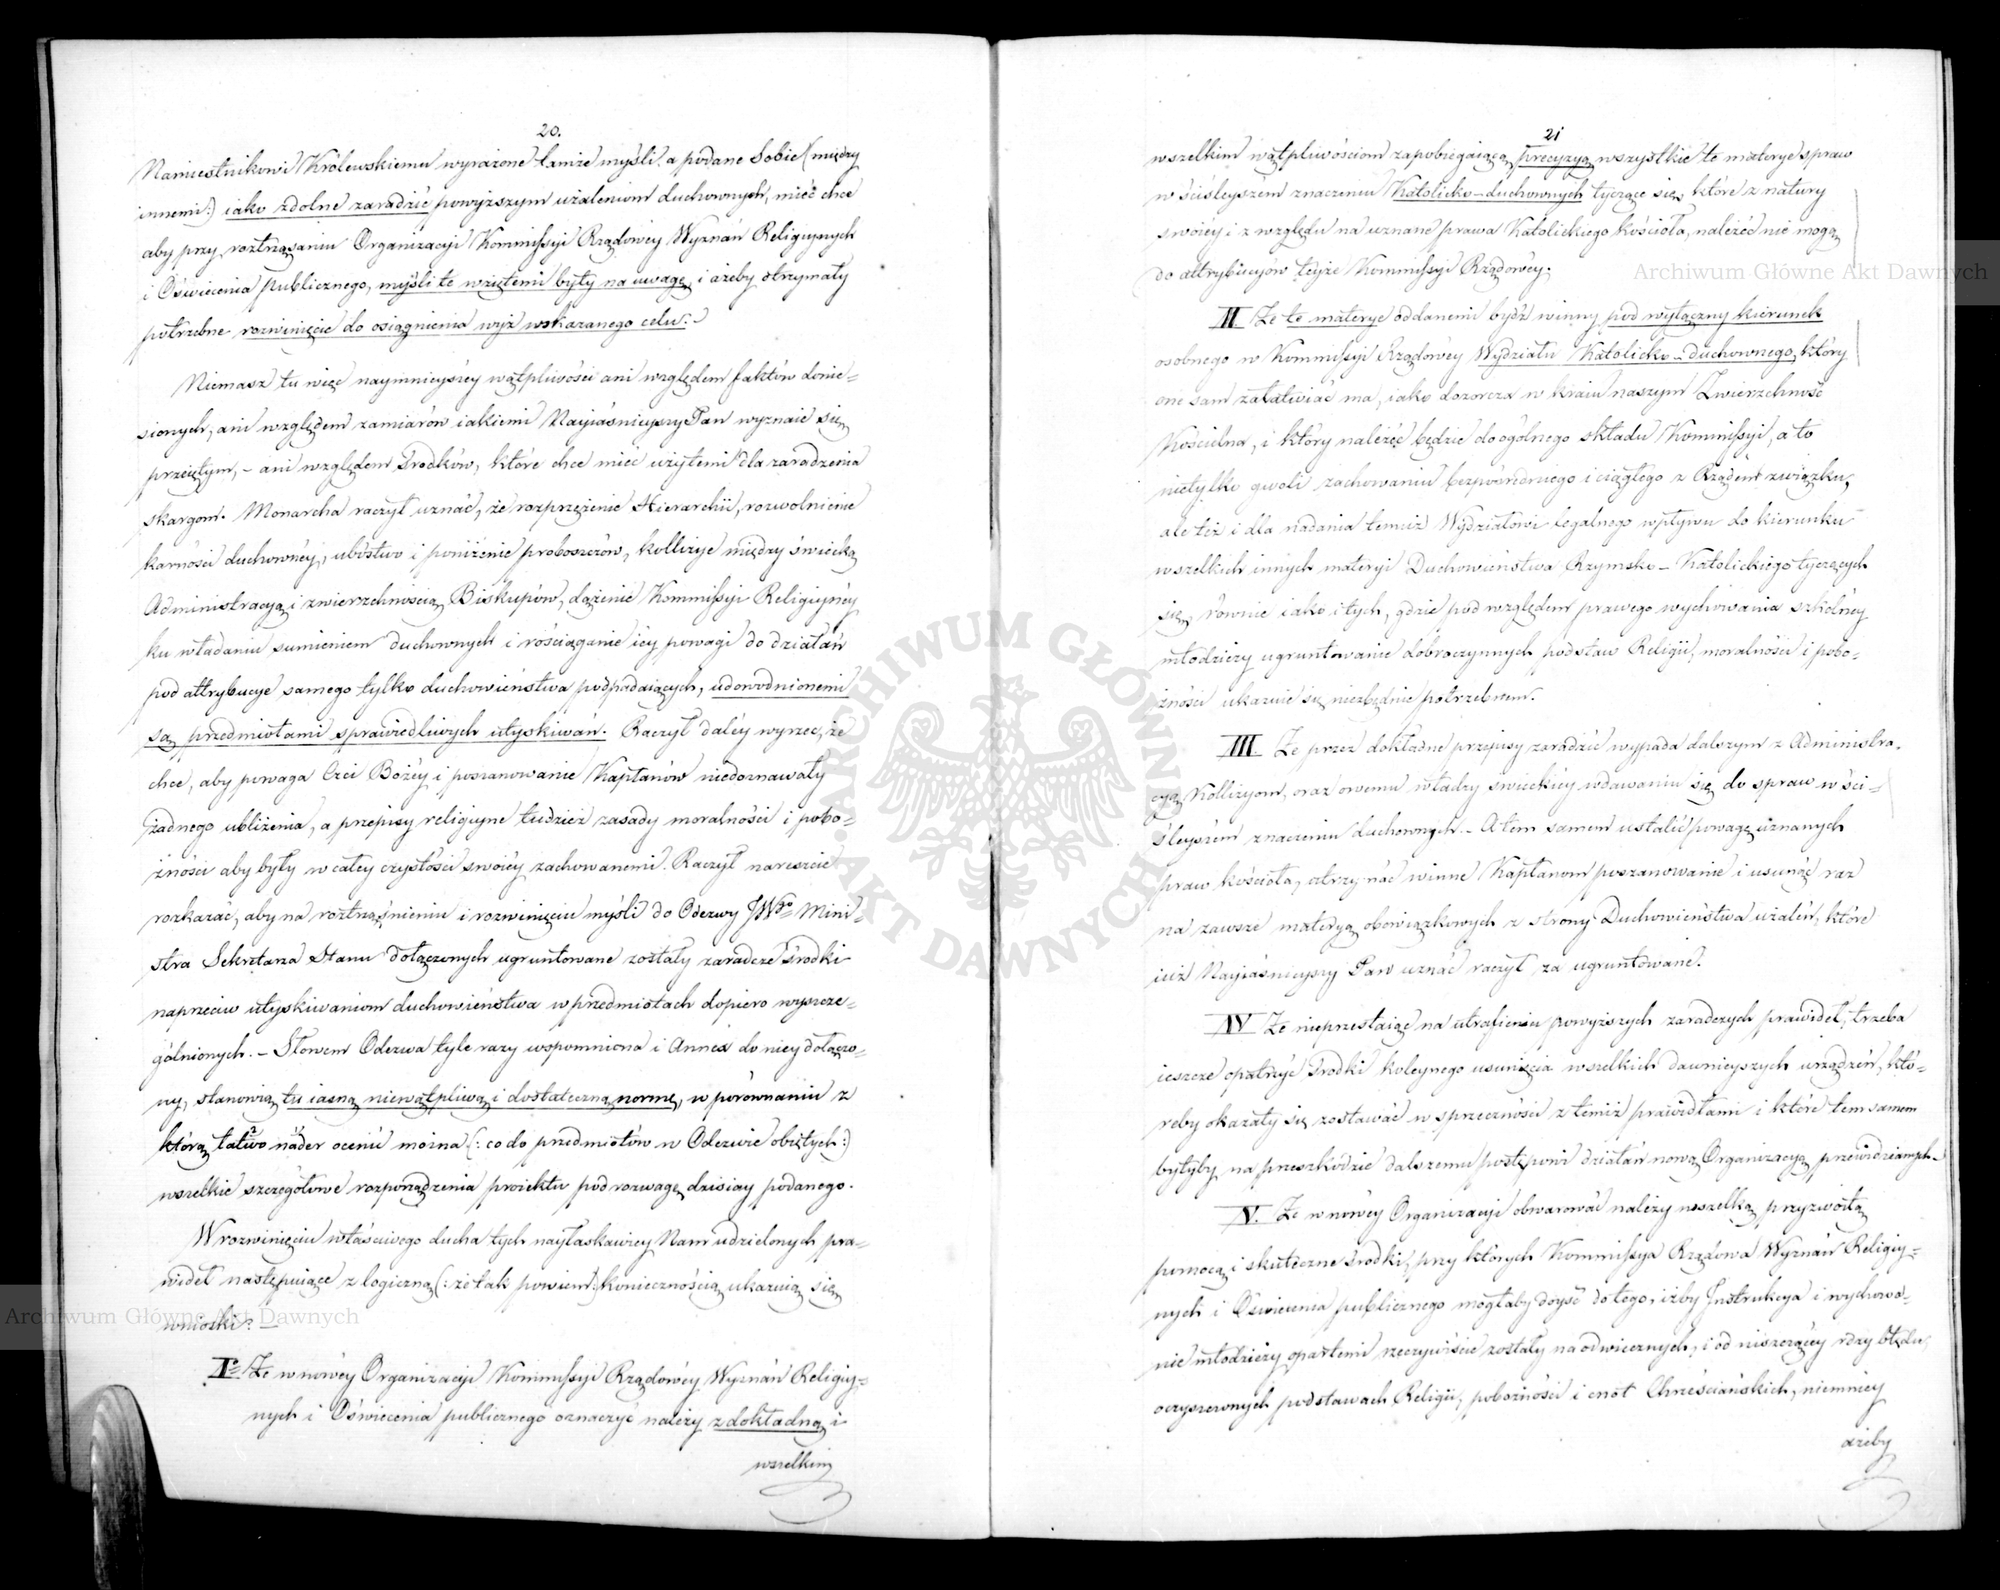 20.
Namiestnikowi Królewskiemu wyrażone tamże myśli, a podane Sobie (między
innemi:) iako zdolne zaradzić powyższym użaleniom duchownych, mieć chce
aby przy roztrząsaniu Organizacyi Kommissyi Rządowey Wyznań Religiynych
i Oświecenia publicznego, myśli te wziętemi były na uwagę, i ażeby otrzymały
potrzebne rozwinięcie do osiągnienia wyż wskazanego celu. –
Niemasz tu więc naymnieyszey wątpliwości ani względem faktów donie-
sionych, ani względem zamiarów iakiemi Nayiaśnieyszy Pan wyznaie się
przeiętym, – ani względem środków, które chce mieć użytemi dla zaradzenia
skargom. Monarcha raczył uznać, że rozprzężenie Hierarchii, rozwolnienie
karności duchownéy, ubóstwo i poniżenie proboszczów, kollizye między świecką
Administracyą i zwierzchnością Biskupów, dążenie Kommissyi Religiynéy
ku władaniu sumieniem duchownych i rościąganie iéy powagi do działań
pod attrybucye samego tylko duchowieństwa podpadaiących, udowodnionemi
są przedmiotami sprawiedliwych utyskiwań. Raczył daléy wyrzec, że
chce, aby powaga Czci Bożéy i poszanowanie Kapłanów niedoznawały
żadnego ubliżenia, a przepisy religiyne tudzież zasady moralności i pobo-
żności aby były w całey czystości swoiéy zachowanemi. Raczył nareszcie
rozkazać, aby na roztrząśnieniu i rozwinięciu myśli do Odezwy JWgo Mini-
stra Sekretarza Stanu dołączonych ugruntowane zostały zaradcze środki
naprzeciw utyskiwaniom duchowieństwa w przedmiotach dopiero wyszcze-
gólnionych. – Słowem Odezwa tyle razy wspomniona i Annex do niey dołączo-
ny, stanowią tu iasną niewątpliwą i dostateczną normę, w porównaniu z
którą łatwo nader ocenić można (: co do przedmiotów w Odezwie obiętych:)
wszelkie szczegółowe rozporządzenia proiektu pod rozwagę dzisiay podanego.
W rozwinięciu właściwego ducha tych nayłaskawiey Nam udzielonych pra-
wideł następuiące z logiczną (: że tak powiem:) koniecznością ukazuią się
wnioski: –
I° Że w nowéy Organizacyi Kommissyi Rządowéy Wyznań Religiy-
nych i Oświecenia publicznego oznaczyć należy z dokładną i
wszelkim
21
wszelkim wątpliwościom zapobiegaiącą precyzyą wszystkie te materye spraw
w ściśleyszém znaczeniu Katolicko-duchownych tyczące się, które z natury
swoiéy i z względu na uznane prawa Katolickiego kościoła, należéć nie mogą
do attrybucyów teyże Kommissyi Rządowéy.
II. Że te materye oddanemi bydź winny pod wyłączny kierunek
osobnego w Kommissyi Rządowéy Wydziału Katolicko-duchownego, który
one sam załatwiać ma, iako dozorcza w kraiu naszym Zwierzchność
Kościelna, i który należéć będzie do ogólnego składu Kommissyi, a to
nietylko gwoli zachowaniu bezpośredniego i ciągłego z Rządem związku,
ale też i dla nadania temuż Wydziałowi legalnego wpływu do kierunku
wszelkich innych materyi Duchowieństwa Rzymsko-Katolickiego tyczących
się, równie iako i tych, gdzie pod względem prawego wychowania szkolnéy
młodzieży ugruntowanie dobroczynnych podstaw Religii, moralności i pobo-
żności ukazuie się niezbędnie potrzebnem.
III Że przez dokładne przepisy zaradzić wypada dalszym z Administra-
cyą Kollizyom, oraz owemu władzy świeckiéy wdawaniu się do spraw w ści-
śleyszém znaczeniu duchownych. – A tem samem ustalić powagę uznanych
praw kościoła, otrzymać winne Kapłanom poszanowanie i usunąć raz
na zawsze materyą obowiązkowych z strony Duchowieństwa użaleń, które
iuż Nayiaśnieyszy Pan uznać raczył za ugruntowane.
IV Że nieprzestaiąc na utrafieniu powyższych zaradczych prawideł, trzeba
ieszcze opatrzyć środki koleynego usunięcia wszelkich dawnieyszych urządzeń, któ-
reby okazały się zostawać w sprzeczności z temiż prawidłami i które tem samem
byłyby na przeszkodzie dalszemu postępowi działań nową Organizacyą przewidzianych
V. Że w nowéy Organizacyi obwarować należy wszelką przyzwoitą
pomocą i skuteczne środki, przy których Kommissya Rządowa Wyznań Religiy-
nych i Oświecenia publicznego mogłaby doyść do tego, iżby Instrukcya i wychowa-
nie młodzieży opartemi rzeczywiście zostały na odwiecznych, i od niszczącéy rdzy błędu
oczyszczonych podstawach Religii, pobożności i cnót Chrześciańskich, niemniey
ażeby
ARCHIWUM GŁÓWNE AKT DAWNYCH
Archiwum Główne Akt Dawnych
Archiwum Główne Akt Dawnych